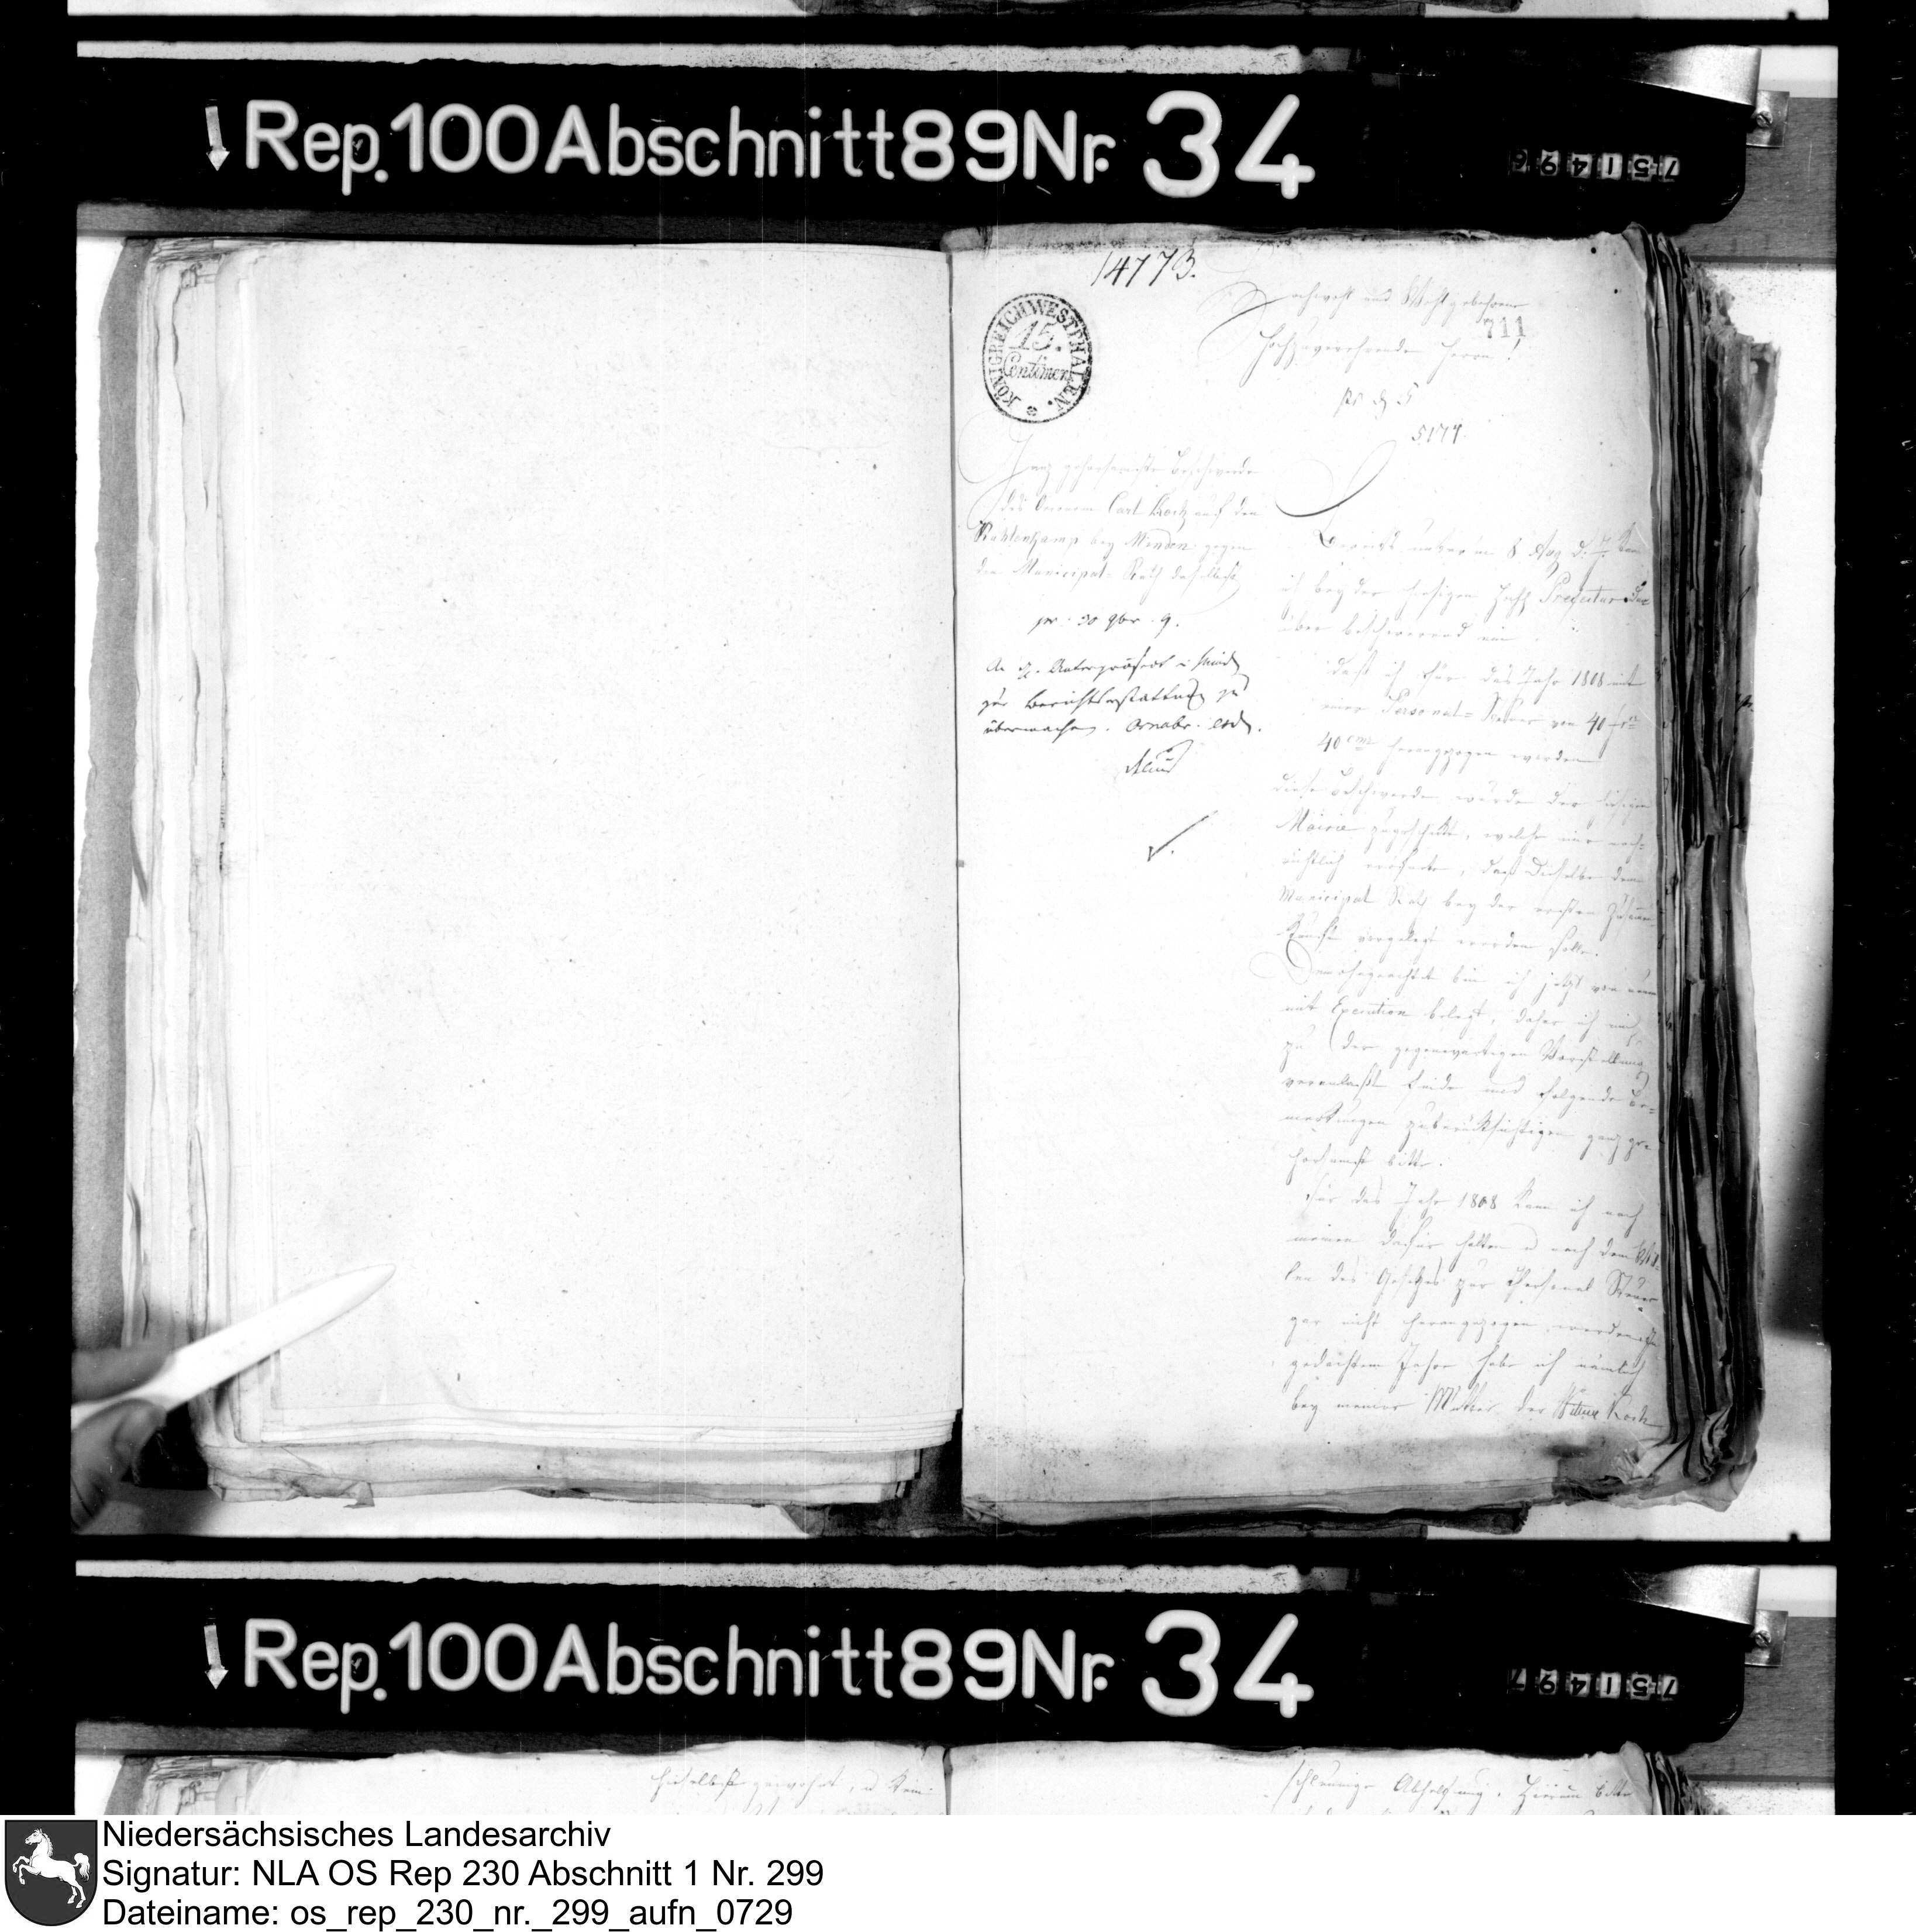 Rep. 100 Abschnitt 89 Nr. 34
751496
14773.
Hochwohl und Wohlgebohrne
711
Hochzuverehrende Herrn!
KÖNIGREICH WESTPHALEN.
15.
Centimen
5177
Ganz gehorsamste Beschwerde
des Oeconom Carl Koch auf den
Kuhlenkamp bey Minden gegen
den Municipal-Rath daselbst
pr. 30 9br. 9.
An H. Unterpräfect i Mind
zur Berichtserstattung zu
übermachen. Osnabr. eod.
Bereits unterm 8 Aug d. J. kam
ich bey der hiesigen Prefectur da
über beschwerend ein
daß ich für das Jahr 1808 mit
einer Personal-Steuer von 40 frc
40 cms herangezogen worden
Diese Beschwerde wurde der hiesigen
Mairie zugeschickt, welche mir nach-
richtlich eröfnete, daß dieselbe dem
Municipal Rath bey der ersten Zusammen
kunft vorgelegt werden solle.
Demohngeachtet bin ich jetzt von neuem
mit Execution belegt, daher ich mich
zu der gegenwartigen Vorstellung
veranlaßt finde und folgende Be-
merkungen zuberücksichtigen ganz ge-
horsamst bitte.
Für das Jahr 1808 kann ich nach
meinem dafür halten u nach dem
des Gesetzes zur Personal Steuer
gar nicht herangezogen werden. In
gedachtem Jahre habe ich nämlich
bey meiner Mutter der Witwe Koch
Rep. 100 Abschnitt 89 Nr. 34
751497
hieselbst gewohnt, u kein
schleunige Abhelfung. Hierum bitte
Niedersächsisches Landesarchiv
Signatur: NLA OS Rep 230 Abschnitt 1 Nr. 299
Dateiname: os_rep_230_nr._299_aufn_0729